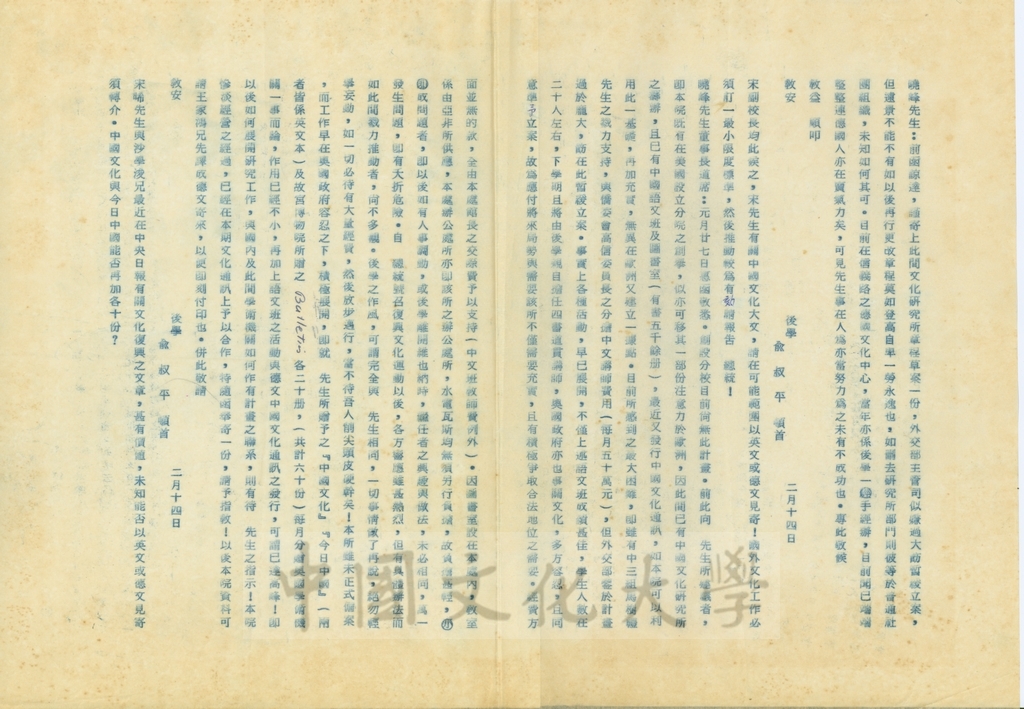 曉峰先生：前函諒達，頃寄上此間文化研究所章程草案一份，外交部主管司似嫌過大勸暫緩立案，
但遠景不能不有如以後再行更改章程莫如登高自卑一勞永逸也，如刪去研究所部門則彼等於普通社
團組織，未知如何其可。目前在信義路之德國文化中心，當年亦係後學一手經辦，目前聞已竭端
整整專德國人亦在賣氣力矣，可見先生事在人為亦當努力為之未有不成功也。專此敬候
教益　順叩
教安
後學　俞叔平　頓首　二月十四日
宋副校長均此候之，宋先生有關中國文化大文，請在可能範圍以英文或德文見寄！國外文化工作必
須訂一最小限度標準，然後推動較為有勁請報告　總裁！
曉峰先生董事長道席：元月廿七日惠函敬悉。關設分校目前尚無此計畫。前此向　先生所建議者，
即本院既有在美國設立分院之前事，似亦可移其一部份注意力於歐洲，因此間已有中國文化研究所
之籌辦，且已有中國語文班及圖書室（有書五千餘冊），最近又發行中國文化通訊，如本院可以利
用此一基礎，再加充實，無異在歐洲又建立一據點。目前所感到之最大困難，即雖有中三組馬樹禮
先生之戮力支持，與僑委會高信委員長之分擔中文講師費用（每月五十萬元），但外交部鑒於計畫
過於龐大，勸在此暫緩立案。事實上各種活動，早已展開，不僅上述語文班成績甚佳，學生人數在
二十人左右，下學期且將由後學親自擔任四書道貫講師，奧國政府亦也事關文化，多方容忍，且同
意準予立案，故為應付將來局勢與需要該所不僅需要充實，且有積極爭取合法地位之需要。經費方
面並無的款，全由本處館長之交際費予以支持（中文班教師費例外）。因圖書室設在本處內，教室
係由亞非所供應，本處辦公處所亦即該所之辦公處所，水電瓦斯均無須另行負擔，故負擔輕，亦
即成問題者，即以後如有人事調動，或後學離開維也納時，繼任者之興趣與做法，未必相同，萬一
發生問題，即有夭折危險。自　總統號召復興文化運動以後，各方響應雖甚熱烈，但有具體辦法而
如此間戮力推動者，尚不多覯。後學之作風，可謂完全與　先生相同，一切事情做了再說，絕勿輕
舉妄動，如一切必待有大量經費，然後放步邁行，當不待吾人削尖頭皮硬幹矣！本所雖未正式備案
，而工作早在奧國政府容忍之下，積極展開，即就　先生所贈予之『中國文化』『今日中國』（兩
者皆係英文本）及故宮博物院所贈之 Bulletin 各二十冊，（共計六十份）每月分贈奧國學術機
關一事而論，作用已經不小，再加上語文班之活動與德文中國文化通訊之發行，可謂已達高峰！即
以後如何展開研究工作，與國內及此間學術機關如何作有計畫之聯系，則有待　先生之指示！本院
慘淡經營之經過，已經在本期文化通訊上予以合作，待隨函奉寄一份，請予指教！以後本院資料可
請王家鴻兄先譯成德文寄來，以便即刻付印也。併此敬請
教安
後學　俞叔平　頓首　二月十四日
宋晞先生與沙學浚兄最近在中央日報有關文化復興之文章，甚有價值，未知能否以英文或德文見寄
須轉介。中國文化與今日中國能否再加各十份？
中國文化大學